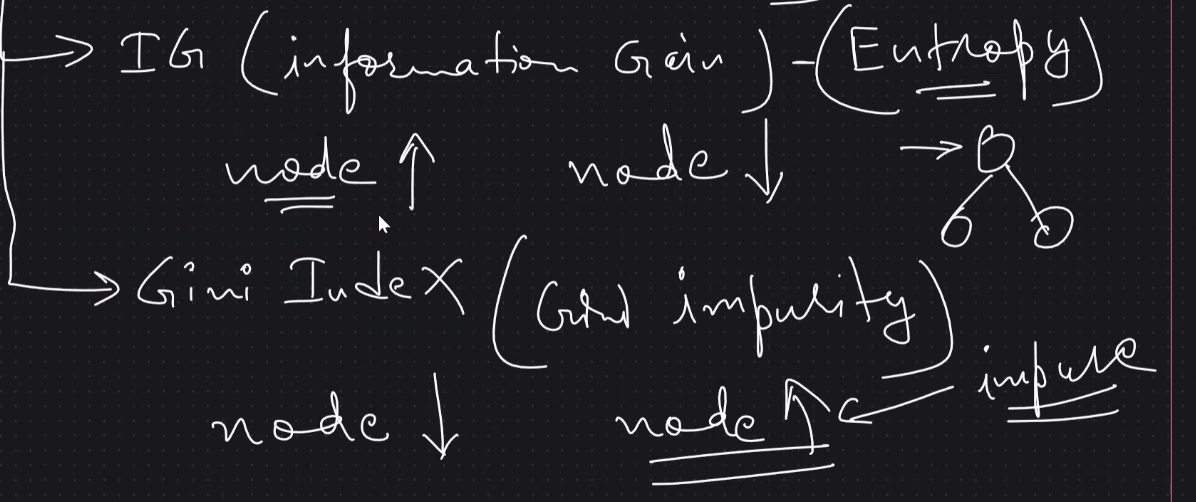 → IG (information Gain) - (Entropy)
node ↑ node ↓ →
→ Gini Index (Gini impurity)
impure
node ↓ node ↑ ←